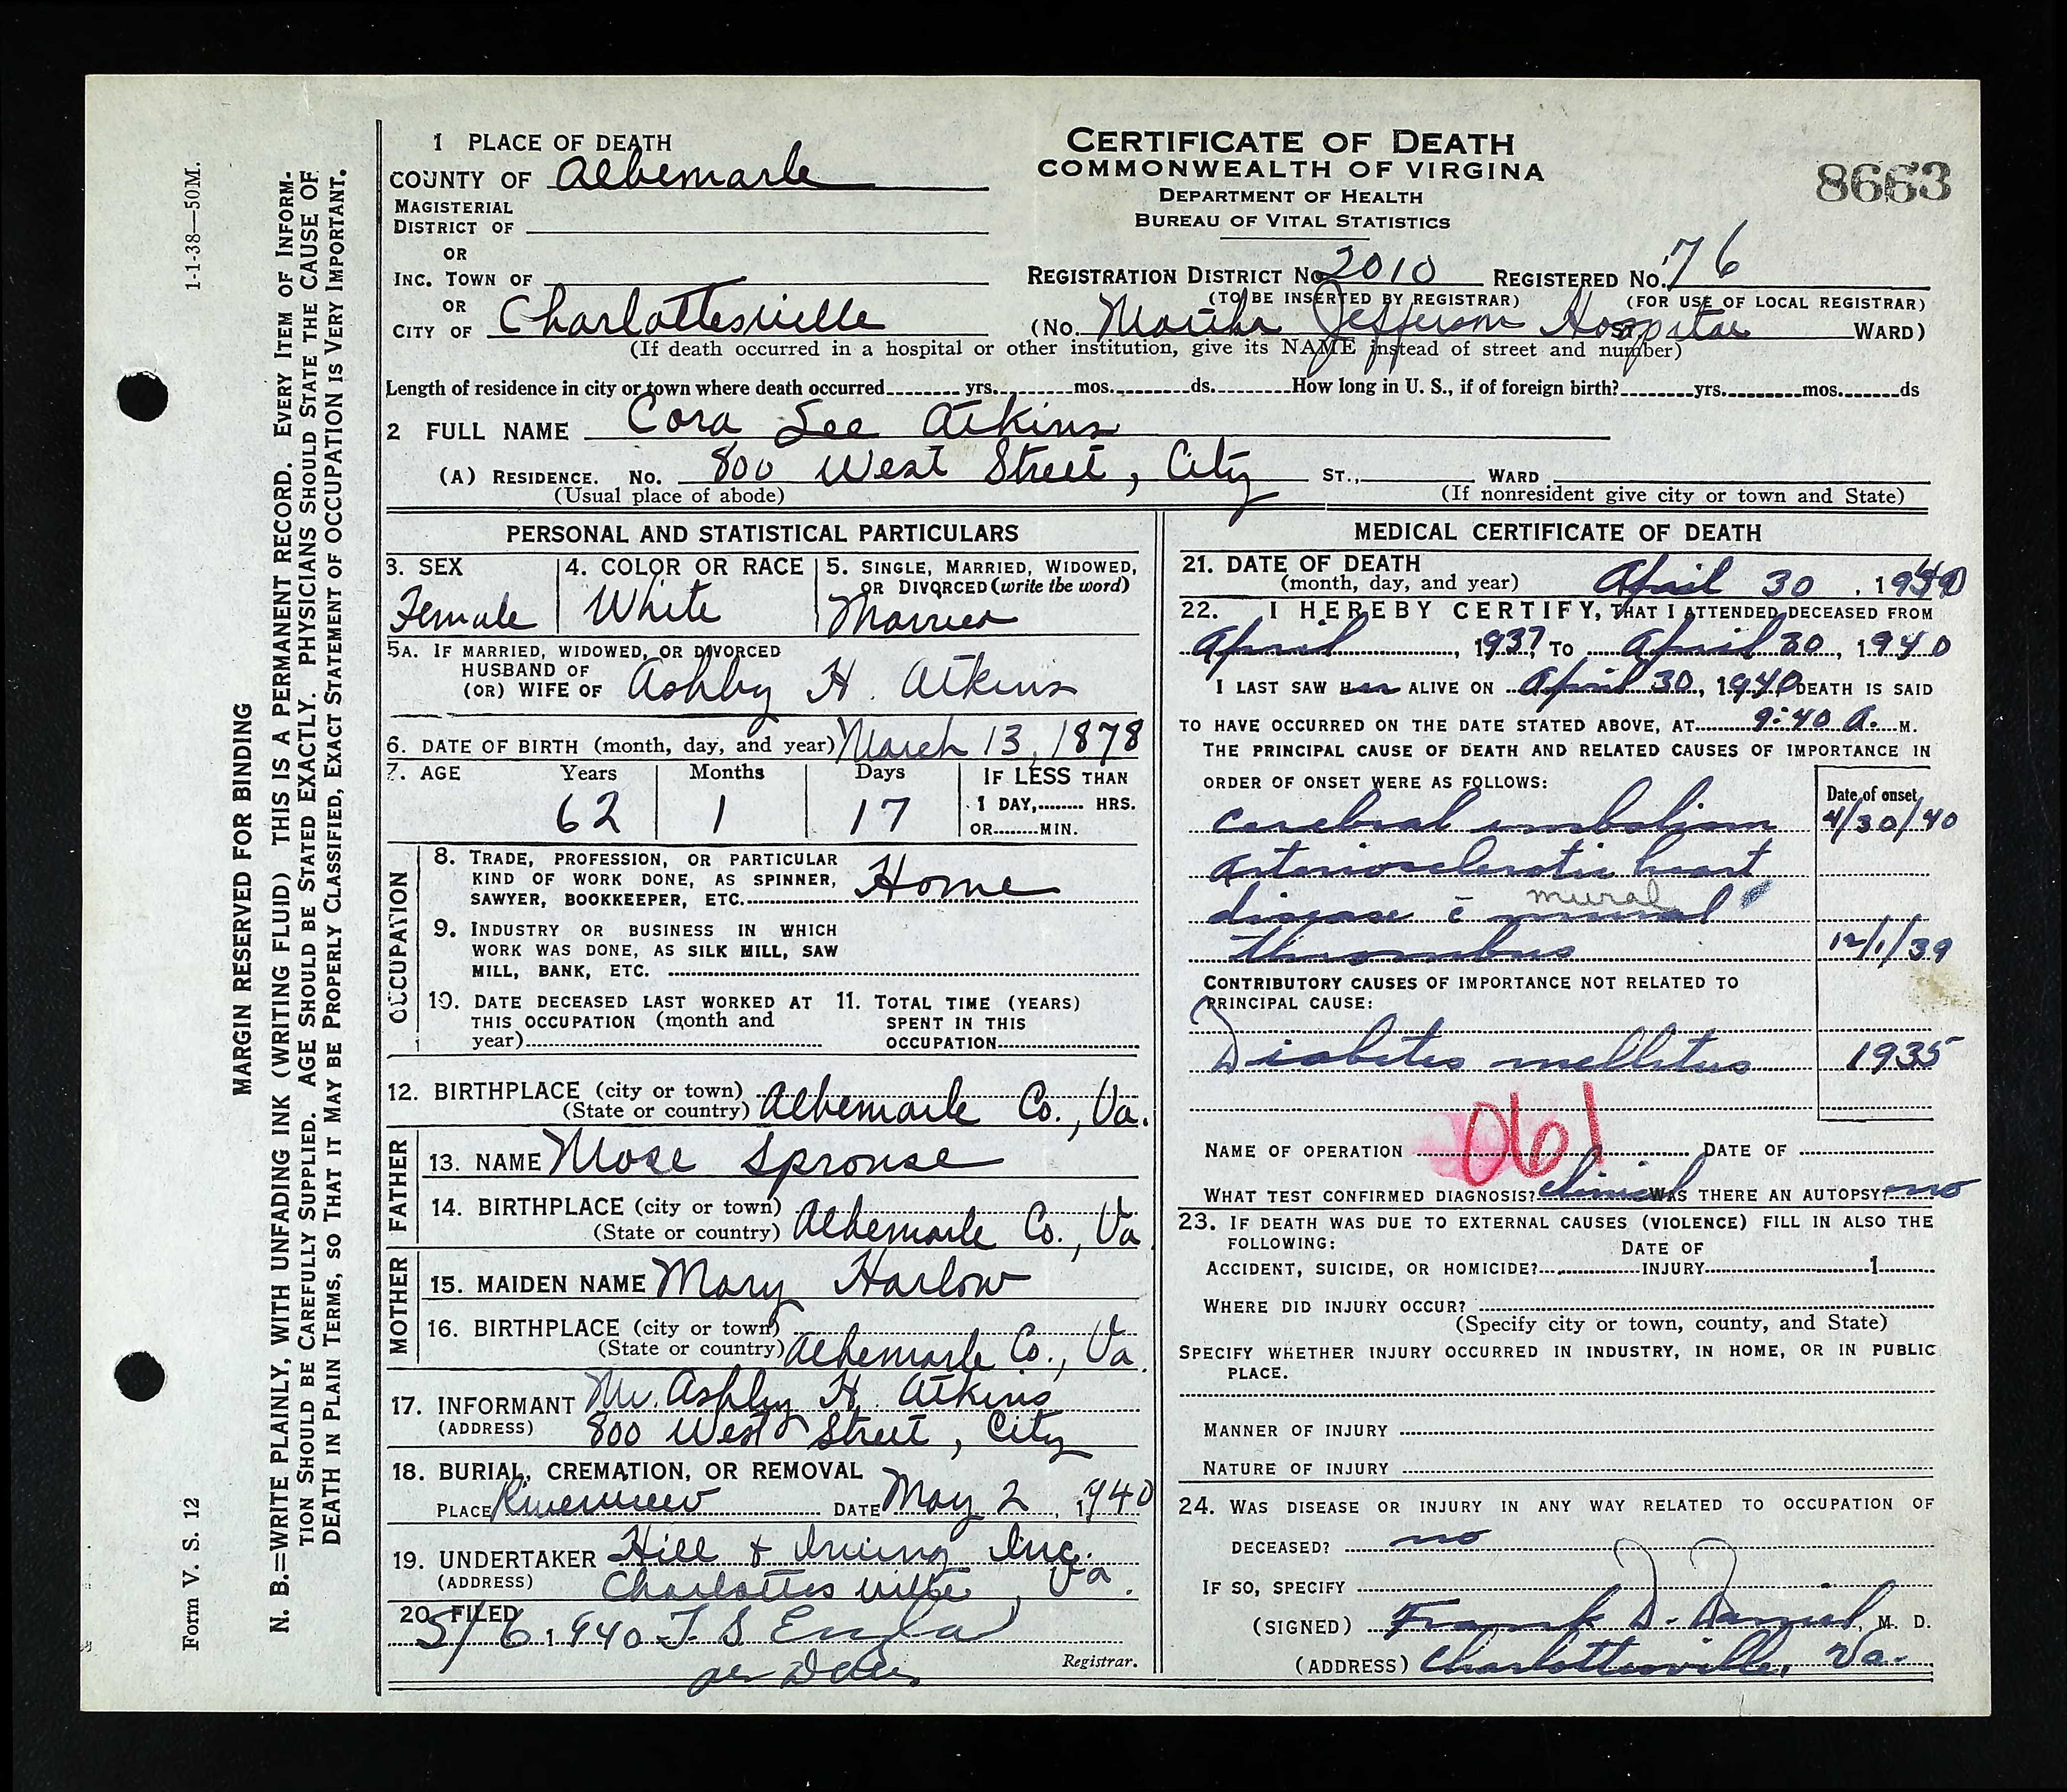 1-1-38—50M.
Form V. S. 12
MARGIN RESERVED FOR BINDING
N. B.=WRITE PLAINLY, WITH UNFADING INK (WRITING FLUID) THIS IS A PERMANENT RECORD. EVERY ITEM OF INFORM-
TION SHOULD BE CAREFULLY SUPPLIED. AGE SHOULD BE STATED EXACTLY. PHYSICIANS SHOULD STATE THE CAUSE OF
DEATH IN PLAIN TERMS, SO THAT IT MAY BE PROPERLY CLASSIFIED, EXACT STATEMENT OF OCCUPATION IS VERY IMPORTANT.
CERTIFICATE OF DEATH
COMMONWEALTH OF VIRGINA
DEPARTMENT OF HEALTH
BUREAU OF VITAL STATISTICS
8663
1 PLACE OF DEATH
COUNTY OF Albemarle
MAGISTERIAL
DISTRICT OF
OR
INC. TOWN OF
OR
CITY OF Charlottesville
REGISTRATION DISTRICT No 2010 REGISTERED NO. 76
(TO BE INSERTED BY REGISTRAR) (FOR USE OF LOCAL REGISTRAR)
(No. Martha Jefferson Hospital ST. WARD)
(If death occurred in a hospital or other institution, give its NAME instead of street and number)
Length of residence in city or town where death occurred yrs. mos. ds. How long in U. S., if of foreign birth? yrs. mos. ds
2 FULL NAME Cora Lee Atkins
(A) RESIDENCE. No. 800 West Street, City ST., WARD
(Usual place of abode) (If nonresident give city or town and State)
PERSONAL AND STATISTICAL PARTICULARS
3. SEX 4. COLOR OR RACE 5. SINGLE, MARRIED, WIDOWED,
OR DIVORCED (write the word)
Female White Married
5A. IF MARRIED, WIDOWED, OR DIVORCED
HUSBAND OF
(OR) WIFE OF Ashby H. Atkins
6. DATE OF BIRTH (month, day, and year) March 13, 1878
7. AGE Years Months Days IF LESS THAN
62 1 17 1 DAY, HRS.
OR MIN.
OCCUPATION
8. TRADE, PROFESSION, OR PARTICULAR
KIND OF WORK DONE, AS SPINNER,
SAWYER, BOOKKEEPER, ETC. Home
9. INDUSTRY OR BUSINESS IN WHICH
WORK WAS DONE, AS SILK MILL, SAW
MILL, BANK, ETC.
10. DATE DECEASED LAST WORKED AT 11. TOTAL TIME (YEARS)
THIS OCCUPATION (month and SPENT IN THIS
year) OCCUPATION
12. BIRTHPLACE (city or town)
(State or country) Albemarle Co., Va.
FATHER
13. NAME Mose Sprouse
14. BIRTHPLACE (city or town)
(State or country) Albemarle Co., Va
MOTHER
15. MAIDEN NAME Mary Harlow
16. BIRTHPLACE (city or town)
(State or country) Albemarle Co., Va.
17. INFORMANT Mr. Ashby H. Atkins
(ADDRESS) 800 West Street, City
18. BURIAL, CREMATION, OR REMOVAL
PLACE Riverview DATE May 2, 1940
19. UNDERTAKER Hill & Irving Inc.
(ADDRESS) Charlottesville, Va.
20. FILED
5/6 1940 Registrar.
MEDICAL CERTIFICATE OF DEATH
21. DATE OF DEATH
(month, day, and year) April 30, 1940
22. I HEREBY CERTIFY, THAT I ATTENDED DECEASED FROM
April, 1937, TO April 30, 1940
I LAST SAW her ALIVE ON April 30, 1940 DEATH IS SAID
TO HAVE OCCURRED ON THE DATE STATED ABOVE, AT 9:40 A. M.
THE PRINCIPAL CAUSE OF DEATH AND RELATED CAUSES OF IMPORTANCE IN
ORDER OF ONSET WERE AS FOLLOWS:
Date of onset
Cerebral embolism 4/30/40
Arteriosclerotic heart
mural
disease c̄ mural
thrombus 12/1/39
CONTRIBUTORY CAUSES OF IMPORTANCE NOT RELATED TO
PRINCIPAL CAUSE:
Diabetes mellitus 1935
061
NAME OF OPERATION DATE OF
WHAT TEST CONFIRMED DIAGNOSIS? Clinical WAS THERE AN AUTOPSY? no
23. IF DEATH WAS DUE TO EXTERNAL CAUSES (VIOLENCE) FILL IN ALSO THE
FOLLOWING:
DATE OF
ACCIDENT, SUICIDE, OR HOMICIDE? INJURY 1
WHERE DID INJURY OCCUR?
(Specify city or town, county, and State)
SPECIFY WHETHER INJURY OCCURRED IN INDUSTRY, IN HOME, OR IN PUBLIC
PLACE.
MANNER OF INJURY
NATURE OF INJURY
24. WAS DISEASE OR INJURY IN ANY WAY RELATED TO OCCUPATION OF
DECEASED? no
IF SO, SPECIFY
(SIGNED) Frank D. Daniel, M. D.
(ADDRESS) Charlottesville, Va.